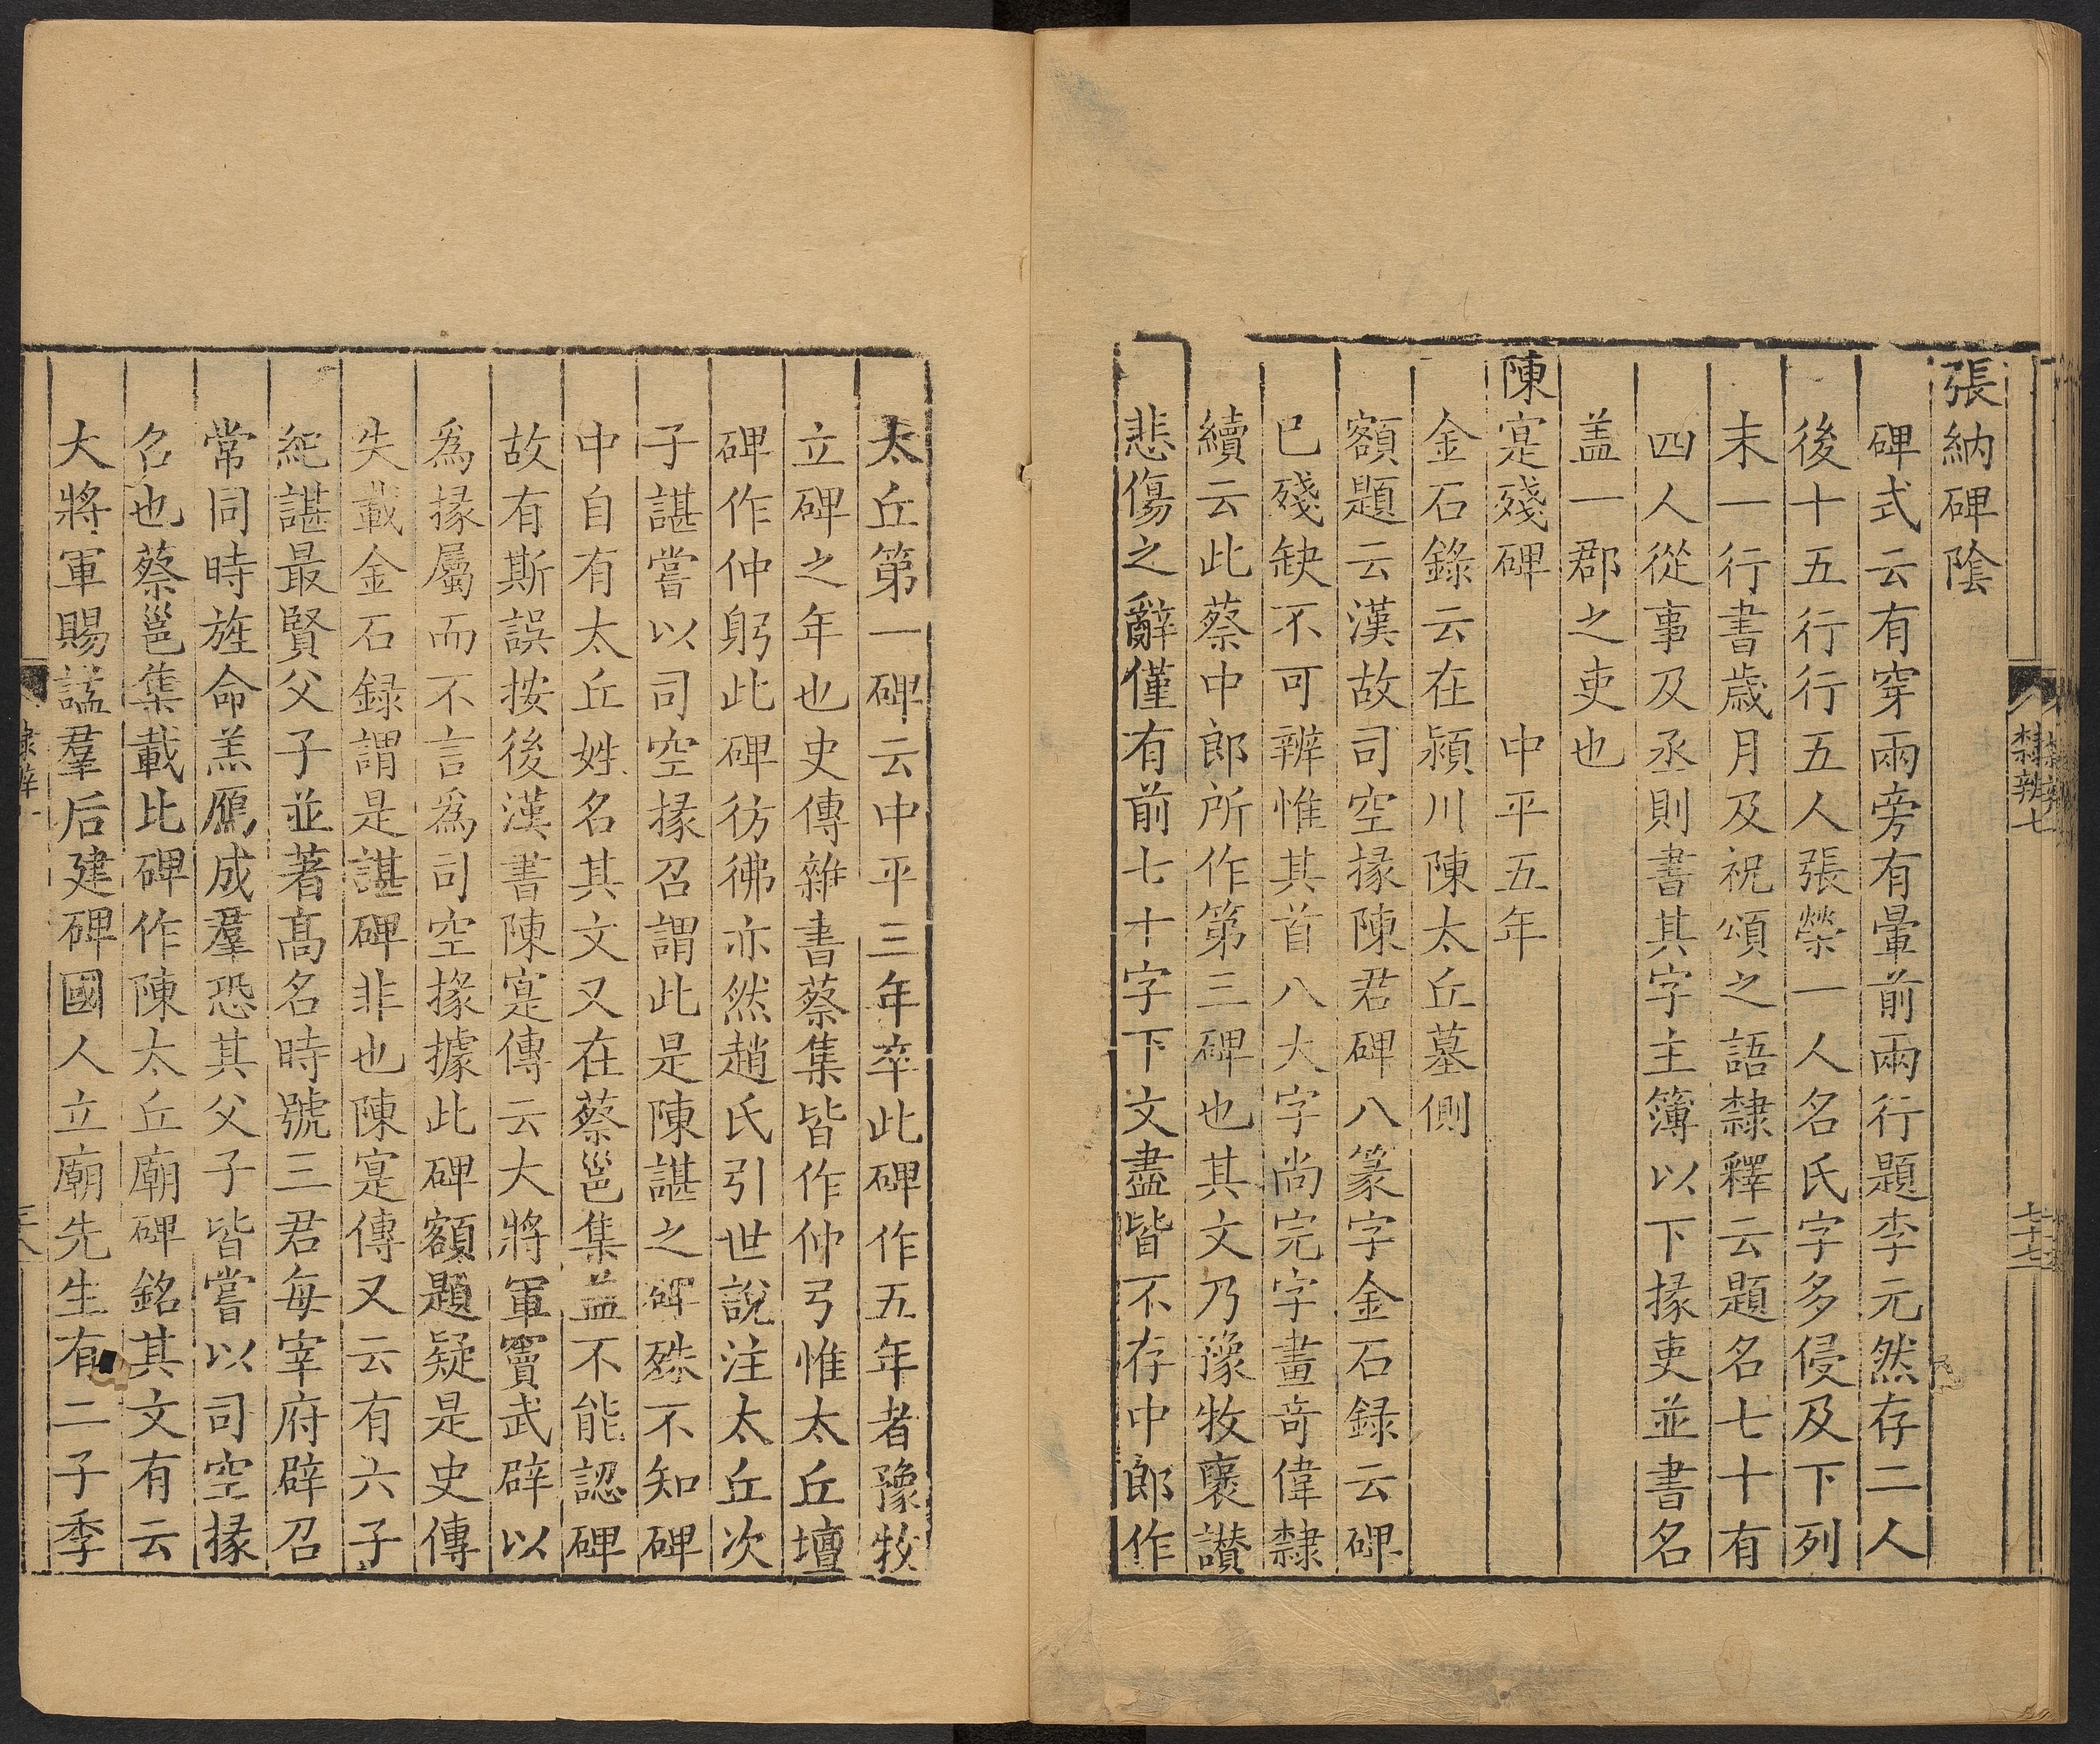 隸辨七
七十七
張納碑陰
碑式云有穿兩旁有暈前兩行題李元然存二人
後十五行行五人張榮一人名氏字多侵及下列
末一行書歲月及祝頌之語隸釋云題名七十有
四人從事及丞則書其字主簿以下掾吏並書名
盖一郡之吏也
陳寔殘碑 中平五年
金石錄云在潁川陳太丘墓側
額題云漢故司空掾陳君碑八篆字金石録云碑
巳殘缺不可辨惟其首八大字尚完字畫奇偉隸
續云此蔡中郎所作第三碑也其文乃豫牧褒讃
悲傷之辭僅有前七十字下文盡皆不存中郎作
太丘第一碑云中平三年卒此碑作五年者豫牧
立碑之年也史傳雜書蔡集皆作仲弓惟太丘壇
碑作仲躬此碑彷彿亦然趙氏引世說注太丘次
子諶嘗以司空掾召謂此是陳諶之碑殊不知碑
中自有太丘姓名其文又在蔡邕集益不能認碑
故有斯誤按後漢書陳寔傳云大將軍竇武辟以
爲掾屬而不言爲司空掾據此碑額題疑是史傳
失載金石録謂是諶碑非也陳寔傳又云有六子
紀諶最賢父子並著髙名時號三君每宰府辟召
常同時旌命羔鴈成羣恐其父子皆嘗以司空掾
召也蔡邕集載比碑作陳太丘廟碑銘其文有云
大將軍賜諡羣后建碑國人立廟先生有二子季